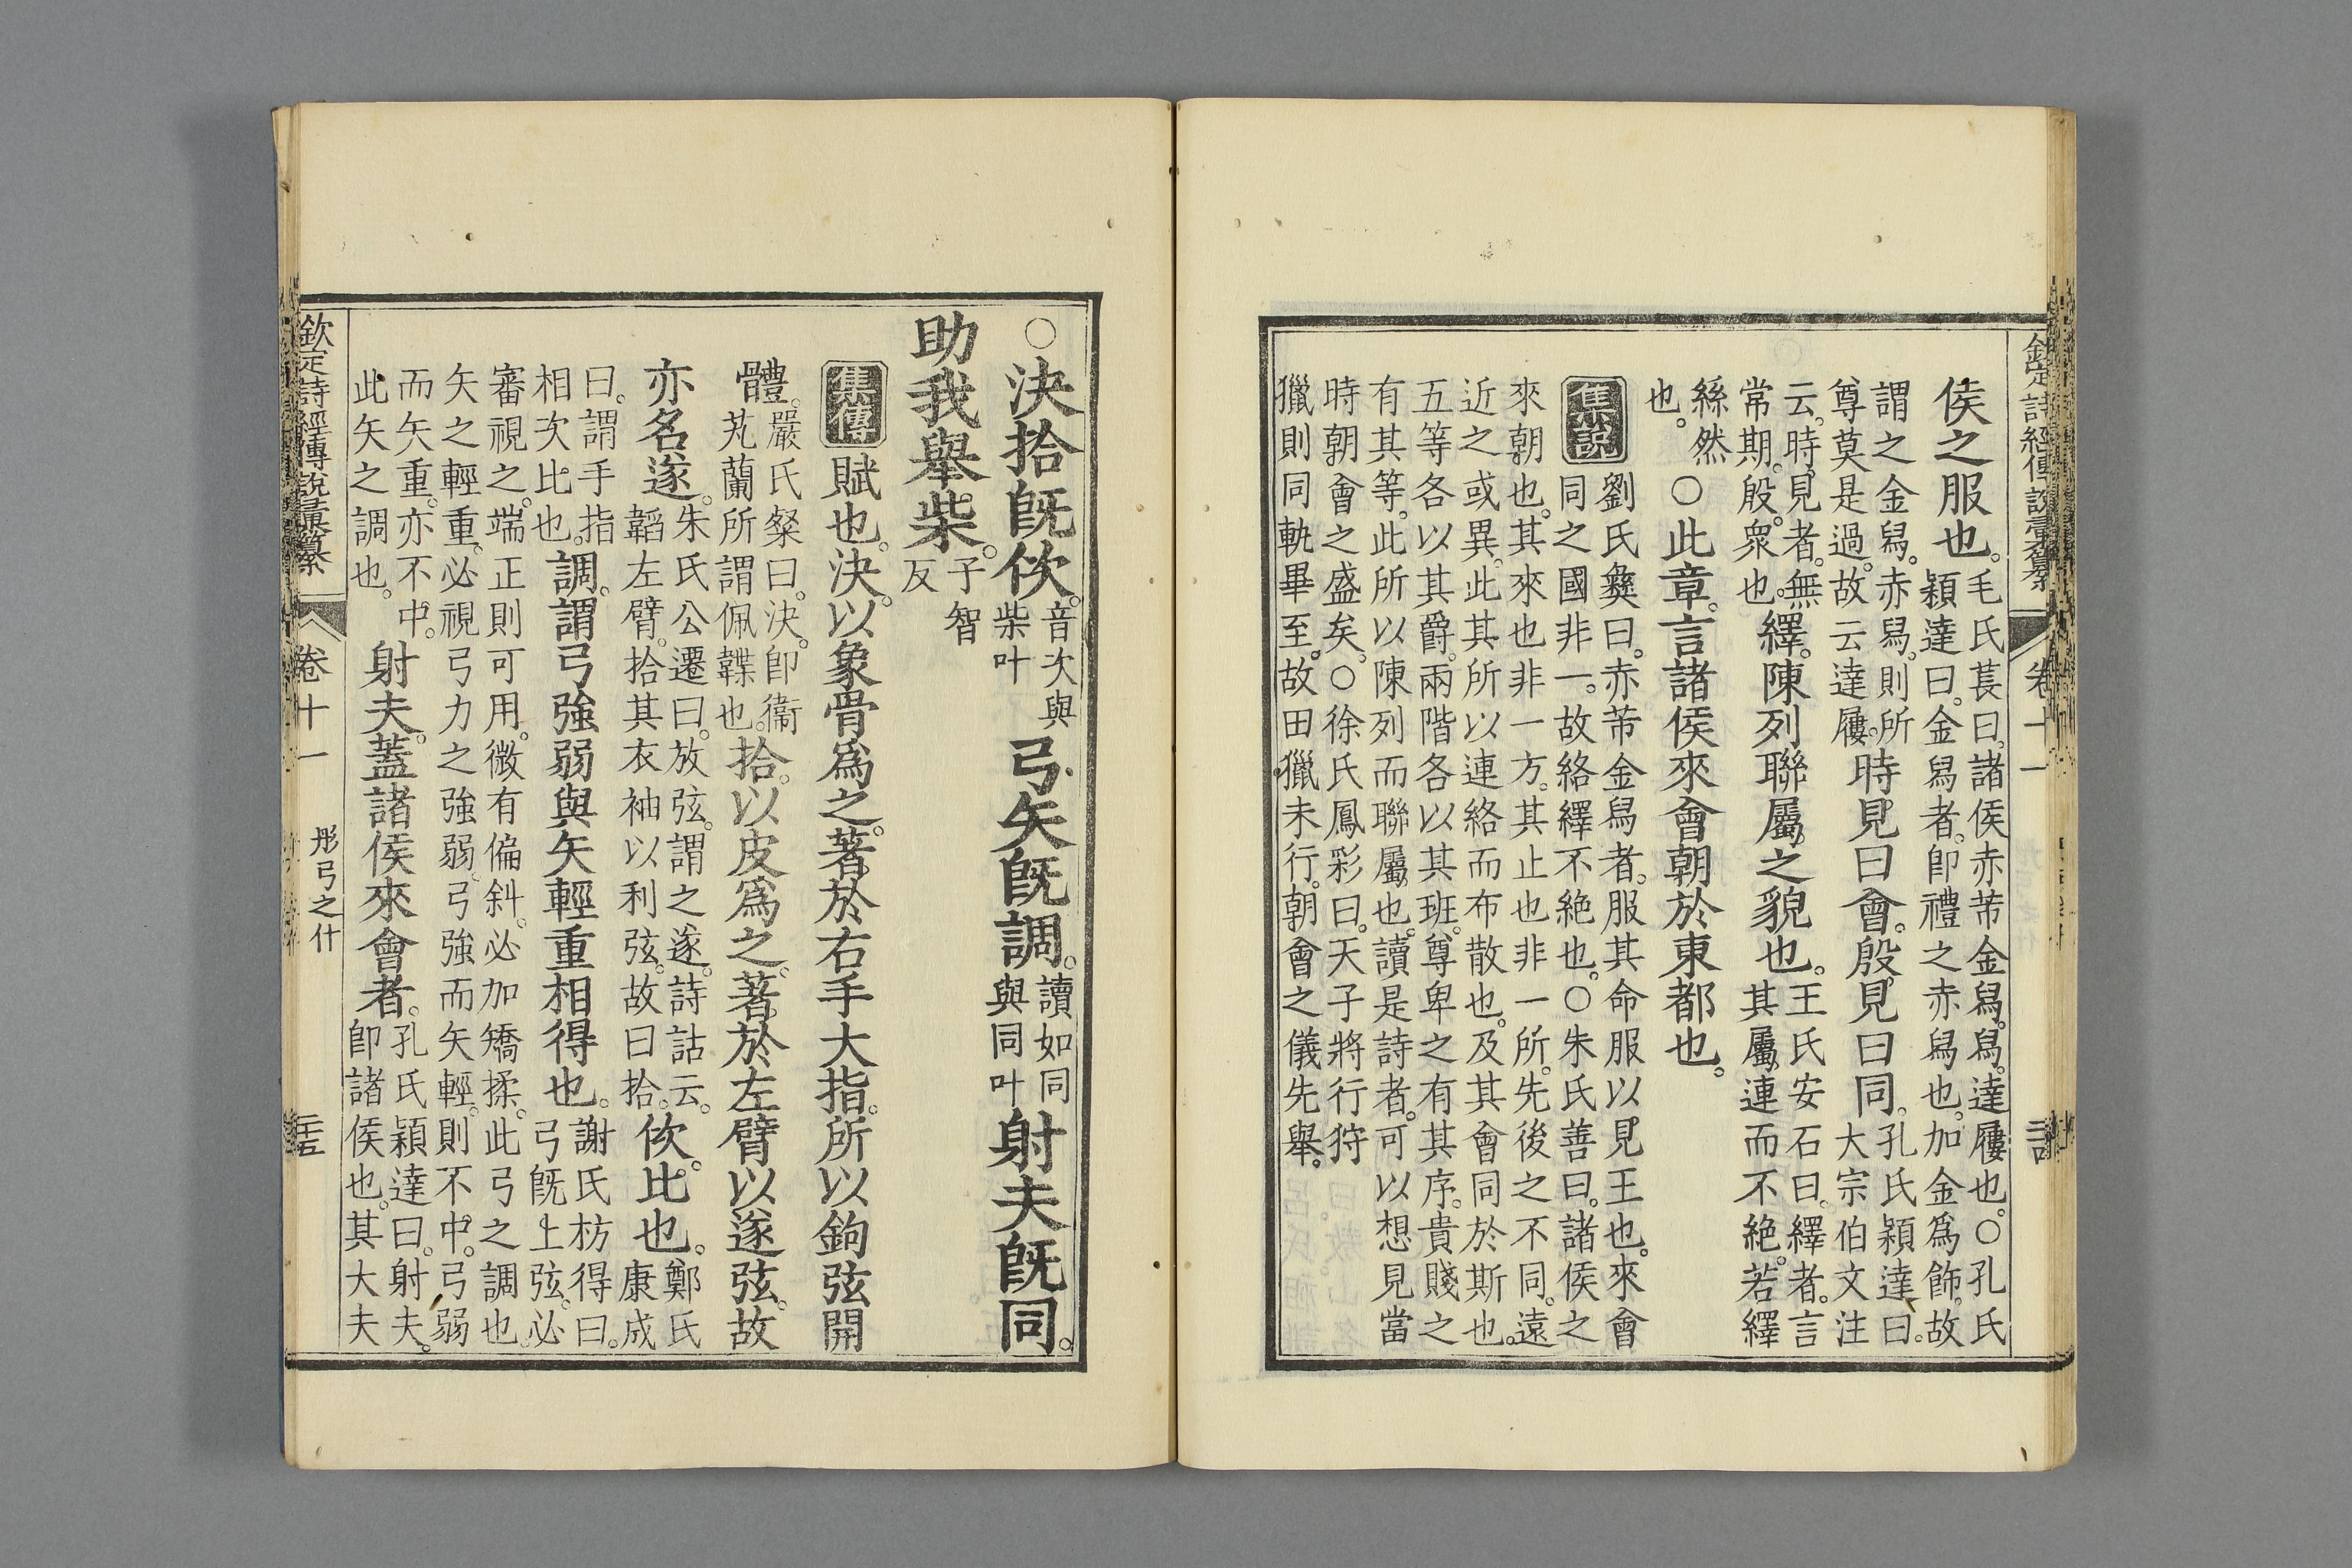 欽定詩經傳說彙纂 卷十一
侯之服也。
毛氏萇曰。諸侯赤芾金舄。舄。達屨也。○孔氏
穎達曰。金舄者。卽禮之赤舄也。加金爲飾。故
謂之金舄。赤舄。則所
尊莫是過。故云達屨。
時見曰會。殷見曰同。
孔氏穎達曰。
大宗伯文注
云。時見者。無
常期。殷。衆也。
繹。陳列聯屬之貌也。
王氏安石曰。繹者。言
其屬。連而不絶。若繹
絲然
也。
○此章。言諸侯來會朝於東都也。
集說
劉氏彝曰。赤芾金舄者。服其命服以見王也。來會
同之國非一。故絡繹不絶也。○朱氏善曰。諸侯之
來朝也。其來也非一方。其止也非一所。先後之不同。遠
近之或異。此其所以連絡而布散也。及其會同於斯也。
五等各以其爵。兩階各以其班。尊卑之有其序。貴賤之
有其等。此所以陳列而聯屬也。讀是詩者。可以想見當
時朝會之盛矣。○徐氏鳳彩曰。天子將行狩
獵則同軌畢至。故田獵未行。朝會之儀先舉。
○決拾旣佽。
音次與
柴叶
弓矢旣調。
讀如同
與同叶
射夫旣同。
助我舉柴。
子智
反
集傳
賦也。決。以象骨爲之。著於右手大指。所以鉤弦開
體。
嚴氏粲曰。決。卽衞
芄蘭所謂佩韘也。
拾。以皮爲之。著於左臂以遂弦。故
亦名遂。
朱氏公遷曰。放弦。謂之遂。詩詁云。
韜左臂。拾其衣袖以利弦。故曰拾。
佽。比也。
鄭氏
康成
曰。謂手指
相次比也。
調。謂弓強弱與矢輕重相得也。
謝氏枋得曰。
弓旣上弦。必
審視之。端正則可用。微有偏斜。必加矯揉。此弓之調也。
矢之輕重。必視弓力之強弱。弓強而矢輕。則不中。弓弱
而矢重。亦不中。
此矢之調也。
射夫。蓋諸侯來會者。
孔氏穎達曰。射夫。
卽諸侯也。其大夫
欽定詩經傳說彙纂 卷十一 彤弓之什